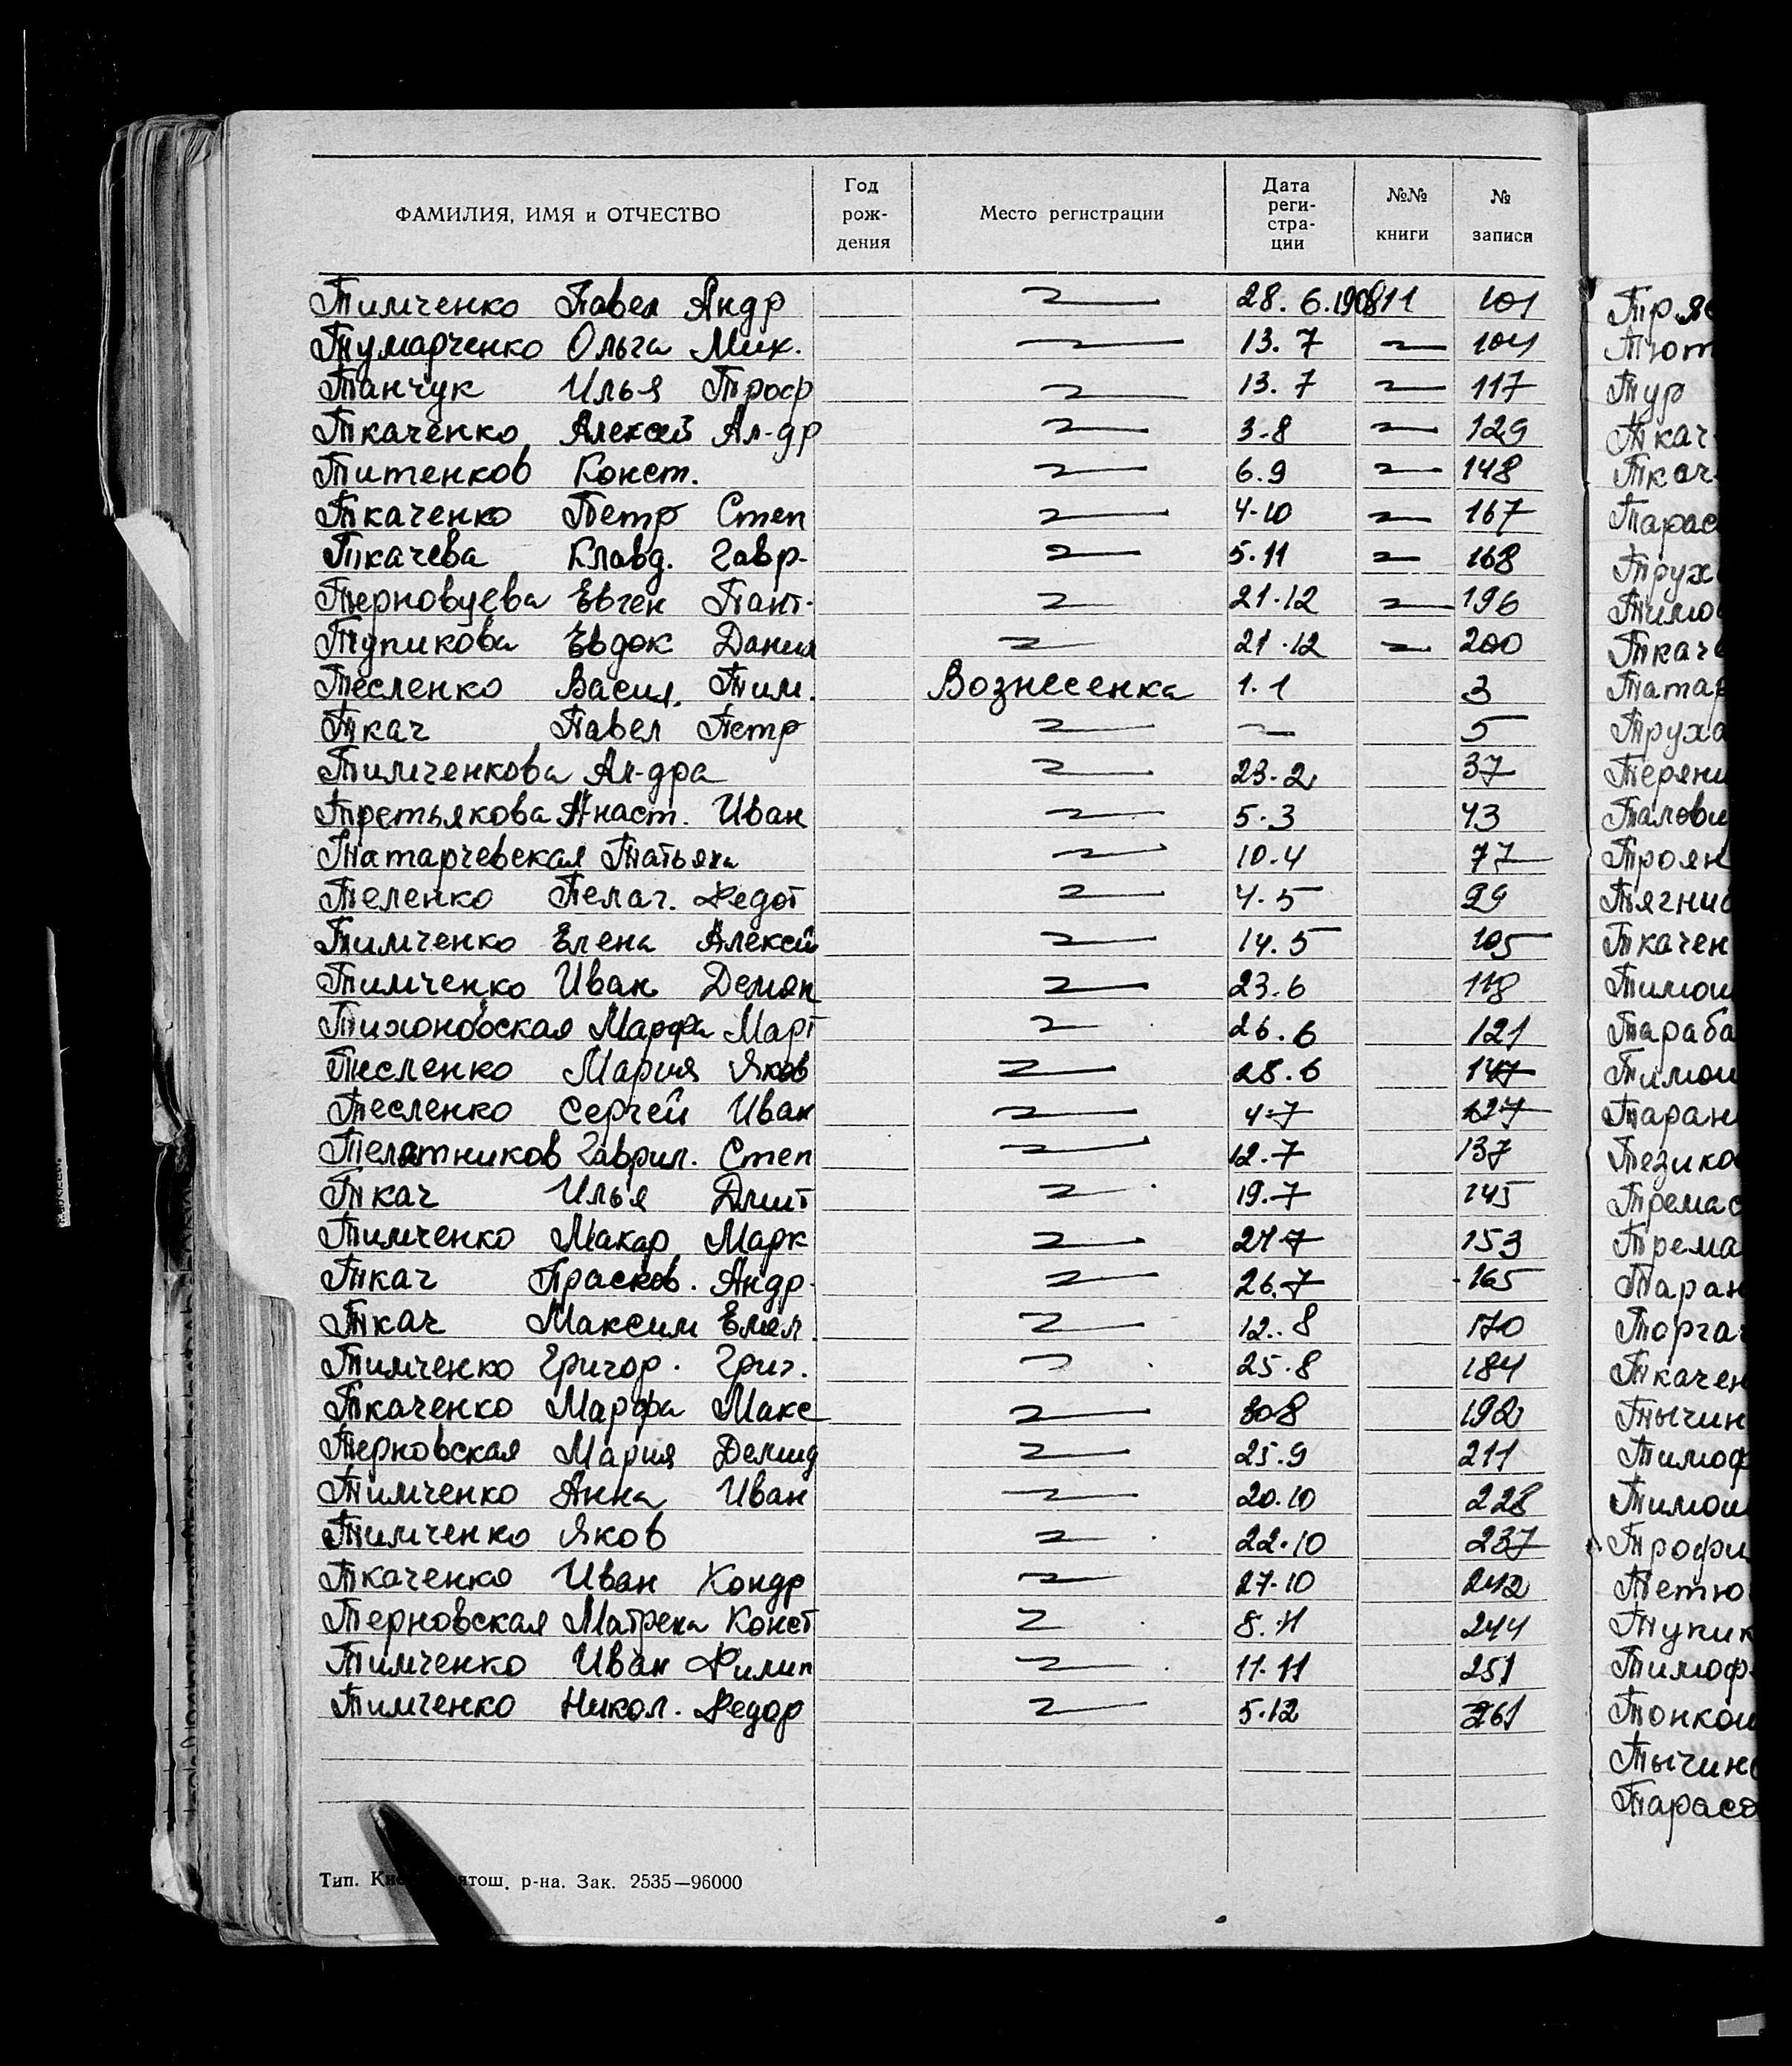 ФАМИЛИЯ, ИМЯ и ОТЧЕСТВО Год рож- дения Место регистрации Дата реги- стра- ции №№ книги № записи
Тимченко Павел Андр 28. 6.1908 11 101
Тумарченко Ольга Мих. 13. 7 104
Танчук Илья Троф 13. 7 117
Ткаченко Алексей Ал-др 3-8 129
Титенков Конст. 6.9 148
Ткаченко Петр Степ 4-10 167
Ткачева Клавд. Гавр. 5.11 168
Терновцева Евген Пант. 21.12 196
Тупикова Евдок Данил 21.12 200
Тесленко Васил. Тим. Вознесенка 1.1 3
Ткач Павел Петр 5
Тимченкова Ал-дра 23.2 37
Третьякова Анаст. Иван 5.3 43
Татарчевская Татьяна 10.4 77
Теленко Пелаг. Федот 4.5 99
Тимченко Елена Алексей 14.5 105
Тимченко Иван Демян 23.6 118
Тихоновская Марфа Март 26.6 121
Тесленко Мария Яков 28.6
Тесленко Сергей Иван 4.7 127
Телятников Гаврил. Степ 12.7 137
Ткач Илья Дмит 19.7 145
Тимченко Макар Марк 153
Ткач Прасков. Андр. 26.7 165
Ткач Максим Емел. 12.8 170
Тимченко Григор. Григ. 25.8 184
Ткаченко Марфа Макс 30.8 192
Терновская Мария Демид 25.9 211
Тимченко Анна Иван 20.10 228
Тимченко Яков 22.10 237
Ткаченко Иван Кондр 27.10 242
Терновская Матрена Конст 8.11 244
Тимченко Иван Филип 11.11 251
Тимченко Никол. Федор 5.12 261
Тип. р-на. Зак. 2535—96000